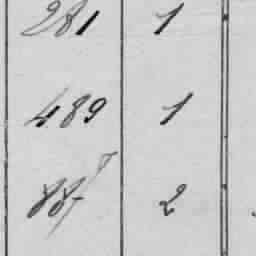 281 1
489 1
887 2